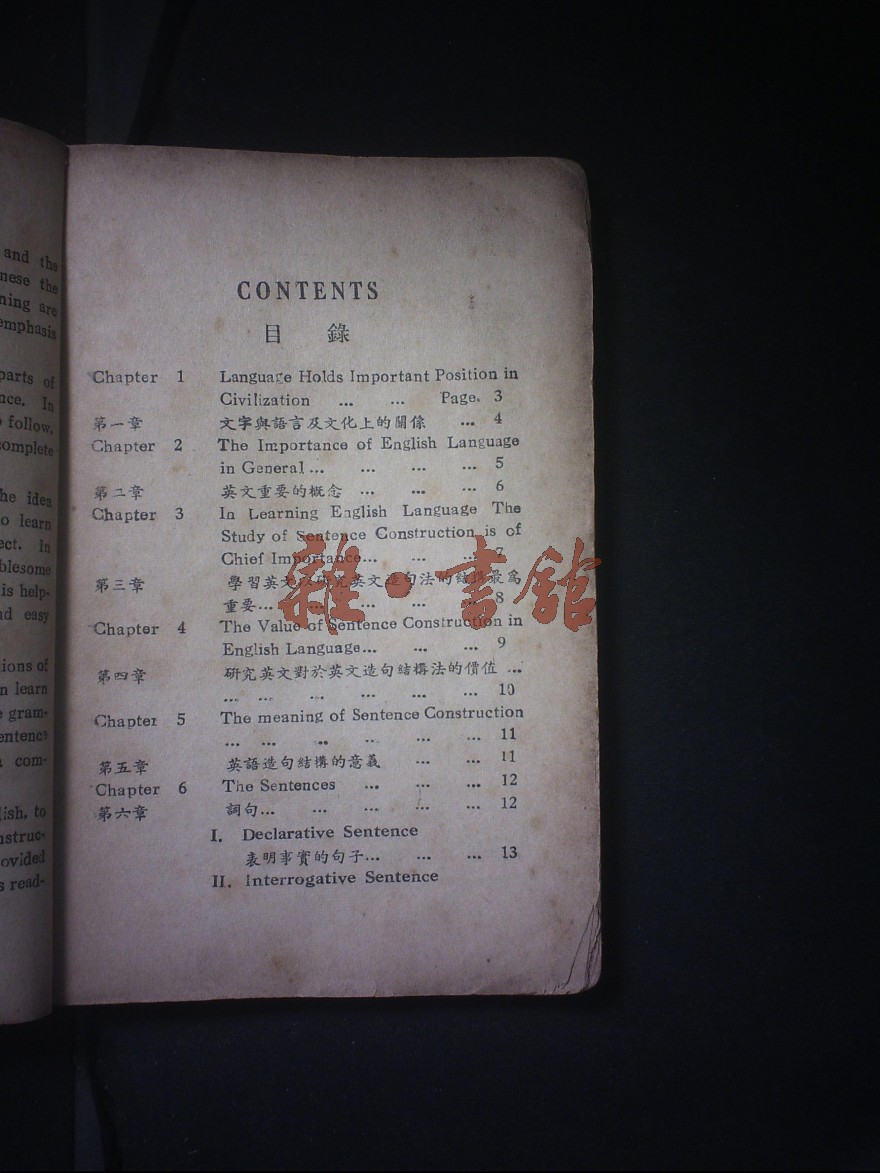 and the
nese the
ning are
emphasis
parts of
nce. In
follow,
complete
he idea
o learn
ect. In
blesome
is help-
nd easy
ions of
n learn
gram-
entence
com-
lish, to
nstruc-
ovided
s read-
CONTENTS
目 錄
Chapter 1 Language Holds Important Position in
Civilization ... ... Page. 3
第一章 文字與語言及文化上的關係 ... 4
Chapter 2 The Importance of English Language
in General... ... ... ... 5
第二章 英文重要的概念 ... ... ... 6
Chapter 3 In Learning English Language The
Study of Sentence Construction is of
Chief Importance... ... ... 7
第三章 學習英文以研究英文造句法的結構最爲
重要... ... ... ... ... 8
Chapter 4 The Value of Sentence Construction in
English Language... ... ... 9
第四章 研究英文對於英文造句結構法的價值 ...
... ... ... ... ... ... 10
Chapter 5 The meaning of Sentence Construction
... ... .. ... ... ... 11
第五章 英語造句結構的意義 ... ... 11
Chapter 6 The Sentences ... ... ... 12
第六章 詞句... ... ... ... ... 12
I. Declarative Sentence
表明事實的句子... ... ... 13
II. Interrogative Sentence
雜·書館